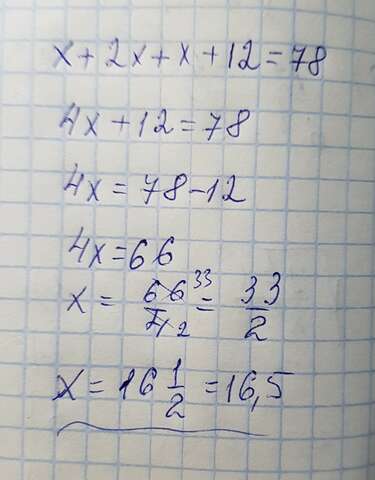 x + 2x + x + 12 = 78
4x + 12 = 78
4x = 78 - 12
4x = 66
x = 66/4 33/2 = 33/2
x = 16 1/2 = 16,5